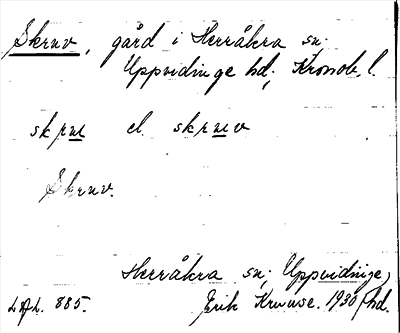 Skruv, gård i Herråkra sn.
Uppvidinge hd, Kronob. l.
skru el. skruv
Skruv.
Herråkra sn, Uppvidinge
885. Erik Kruuse. 1930 hd.